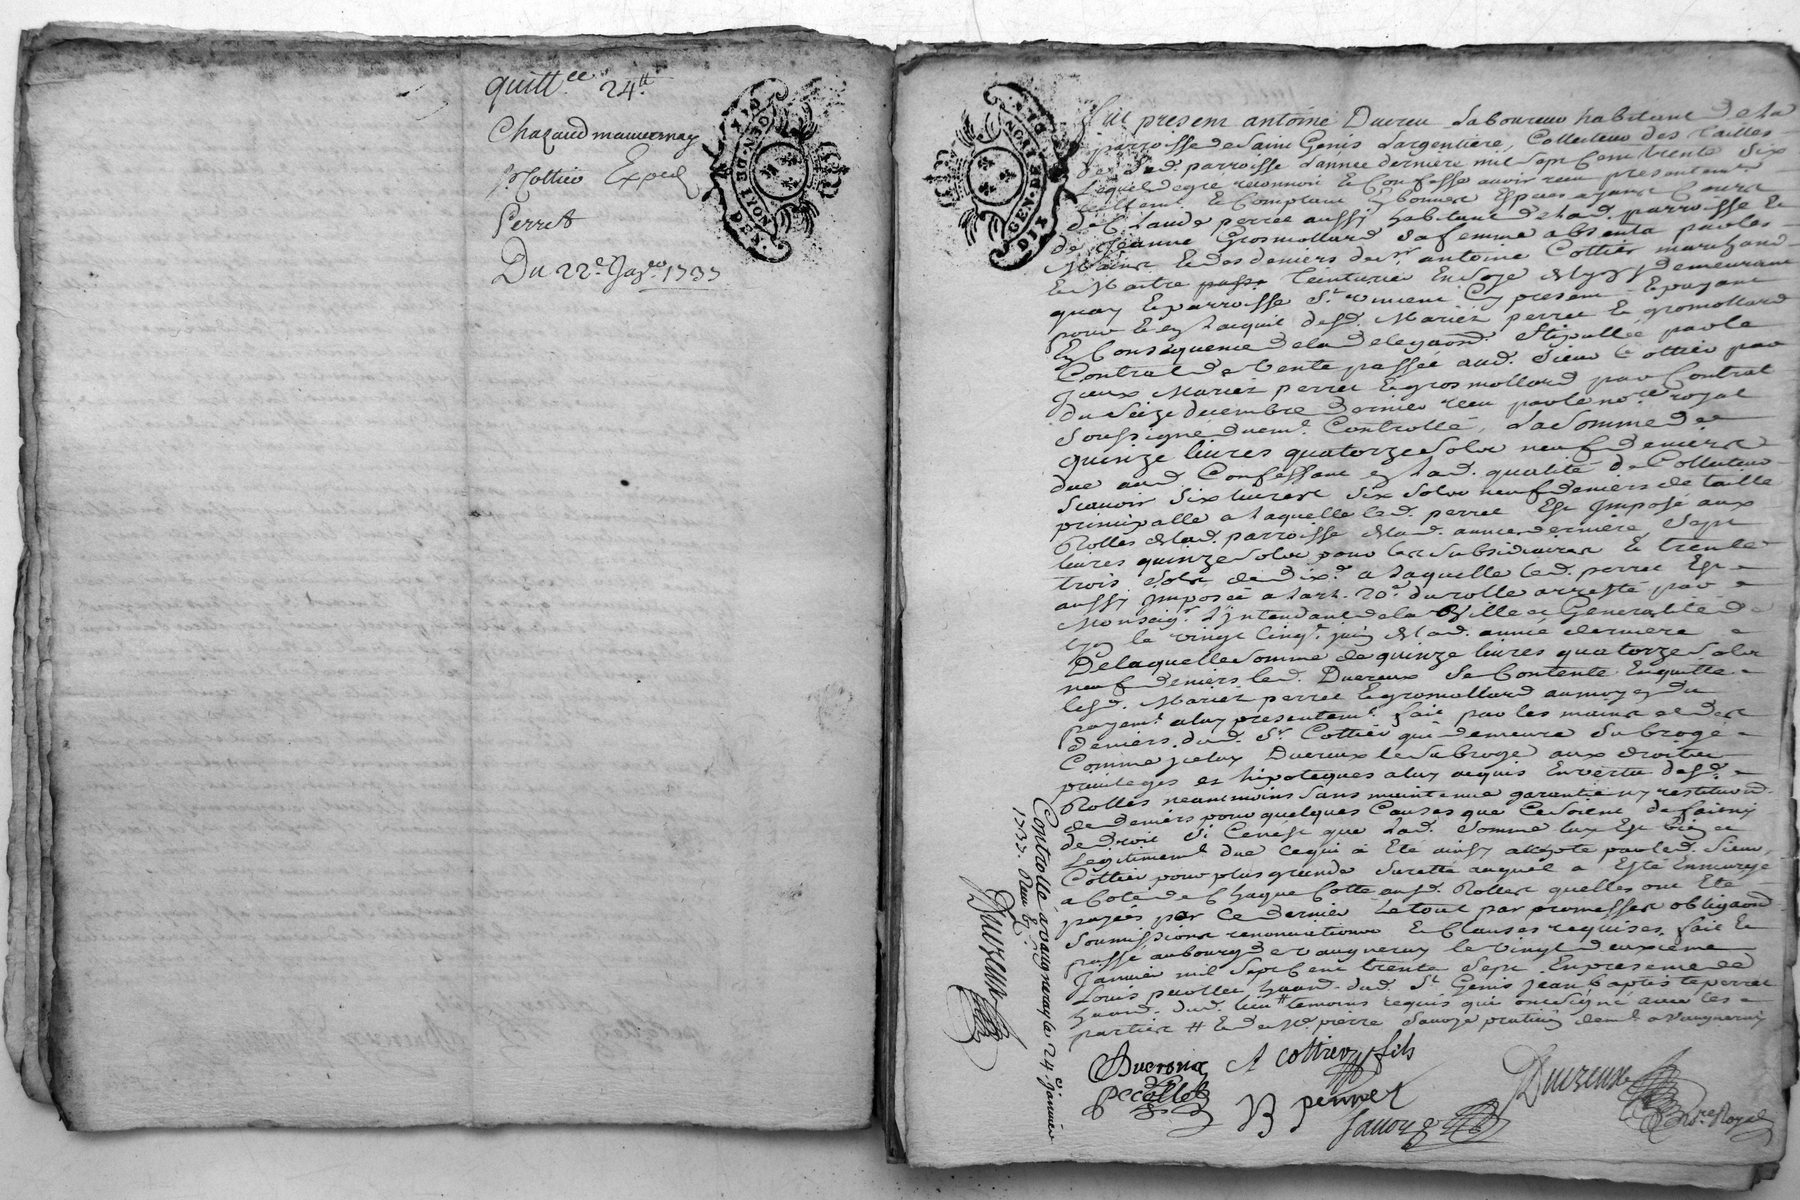 quitt.ce 24.tt
Cottier Exped
Perret
Du 22.e Janv.er 1737
GEN·DE LYON
DIX DEN.
GEN·DE LYON
DIX DEN.
Fut present antoine Ducreu Laboureur habitant de la
parroisse de Saint Genis Largentiere, Collecteur des tailles
de lad. parroisse Lannee derniere mil sept Cent trente Six
Lequel de gré reconnoit Et Confesse avoir receu presentement
reellement Et Comptant En bonnes Especes ayant Cours
de Claude perret aussy habitant de lad. parroisse Et
de Jeanne Grosmollard Sa femme absents par les
Mains Et des deniers de sr. antoine Cottier marchand
Et Maitre Teinturier En Soye a Lyon y demeurant
quay Et parroisse St. vincent Cy present Et payant
pour Et en Lacquit desd. Mariéz perret Et gromollard
En Consequence de la delegaon. Stipullée par le
Contrat de Vente passée aud. Sieur Cottier par
Iceux Mariéz perret Et grosmollard par Contrat
du Seize decembre dernier receu par le nore. royal
Soussigné duemt. Controllé, La Somme de
quinze livres quatorze Solz neuf deniers
due aud. Confessant en Lad. qualité de Collecteur
Scavoir Six livres Six Solz neuf deniers de taille
principalle a Laquelle led. perret Est Imposé aux
Rolles de lad. parroisse de lad. année derniere, Sept
livres quinze Solz pour les Subsidiaires Et trente
trois Solz de dixe. a Laquelle led. perret Est
aussy Imposée a Lart. 20e. du rolle arresté par
Monseigr. L'Intendant de la Ville et Generallité de
Lyon le vingt Cinqe. juin de lad. année derniere
De laquelle Somme de quinze livres quatorze Solz
neuf deniers led. Ducreux Se Contente En quitte
lesd. Mariéz perret Et gromollard au moyen du
payemt. a luy presentemt. fait par les mains et des
deniers dud. Sr. Cottier qui demeure Subrogé
Comme Iceluy Ducreux le Subroge aux droits
privileges et hipoteques a luy acquis En vertu desd.
Rolles neantmoins Sans maintenue garantie ny restitution.
de deniers pour quelques Causes que Ce Soient de fait ny
de droit Si Cenest que Lad. Somme luy Est bien et
Legitimemt. due Ce qui a Eté ainsy accepté par led. Sieur
Cottier pour plus grande Suretté auquel a Esté Enmargé
a Coté de Chaque Cotte ausd. Rolles quelles ont Eté
payées par Ce dernier Le tout par promesses obligaons.
Soumissions renonciations Et Clauses requises. fait Et
passé au bourg de vaugneray le vingt deuxieme
Janvier mil Sept Cent trente Sept En presence de
Louis pecollet habitant dud. St. Genis Jean baptiste perret
temoins requis qui ont Signé avec les
parties # Et de me. pierre Savoye praticien demt. a Vaugneray
Controllé a vaugneray le 24.e janvier
1737. Receu
Ducreux
Ducroux A Cottier fils Ducreux
pecollet B perret Nore. Royal
Savoye